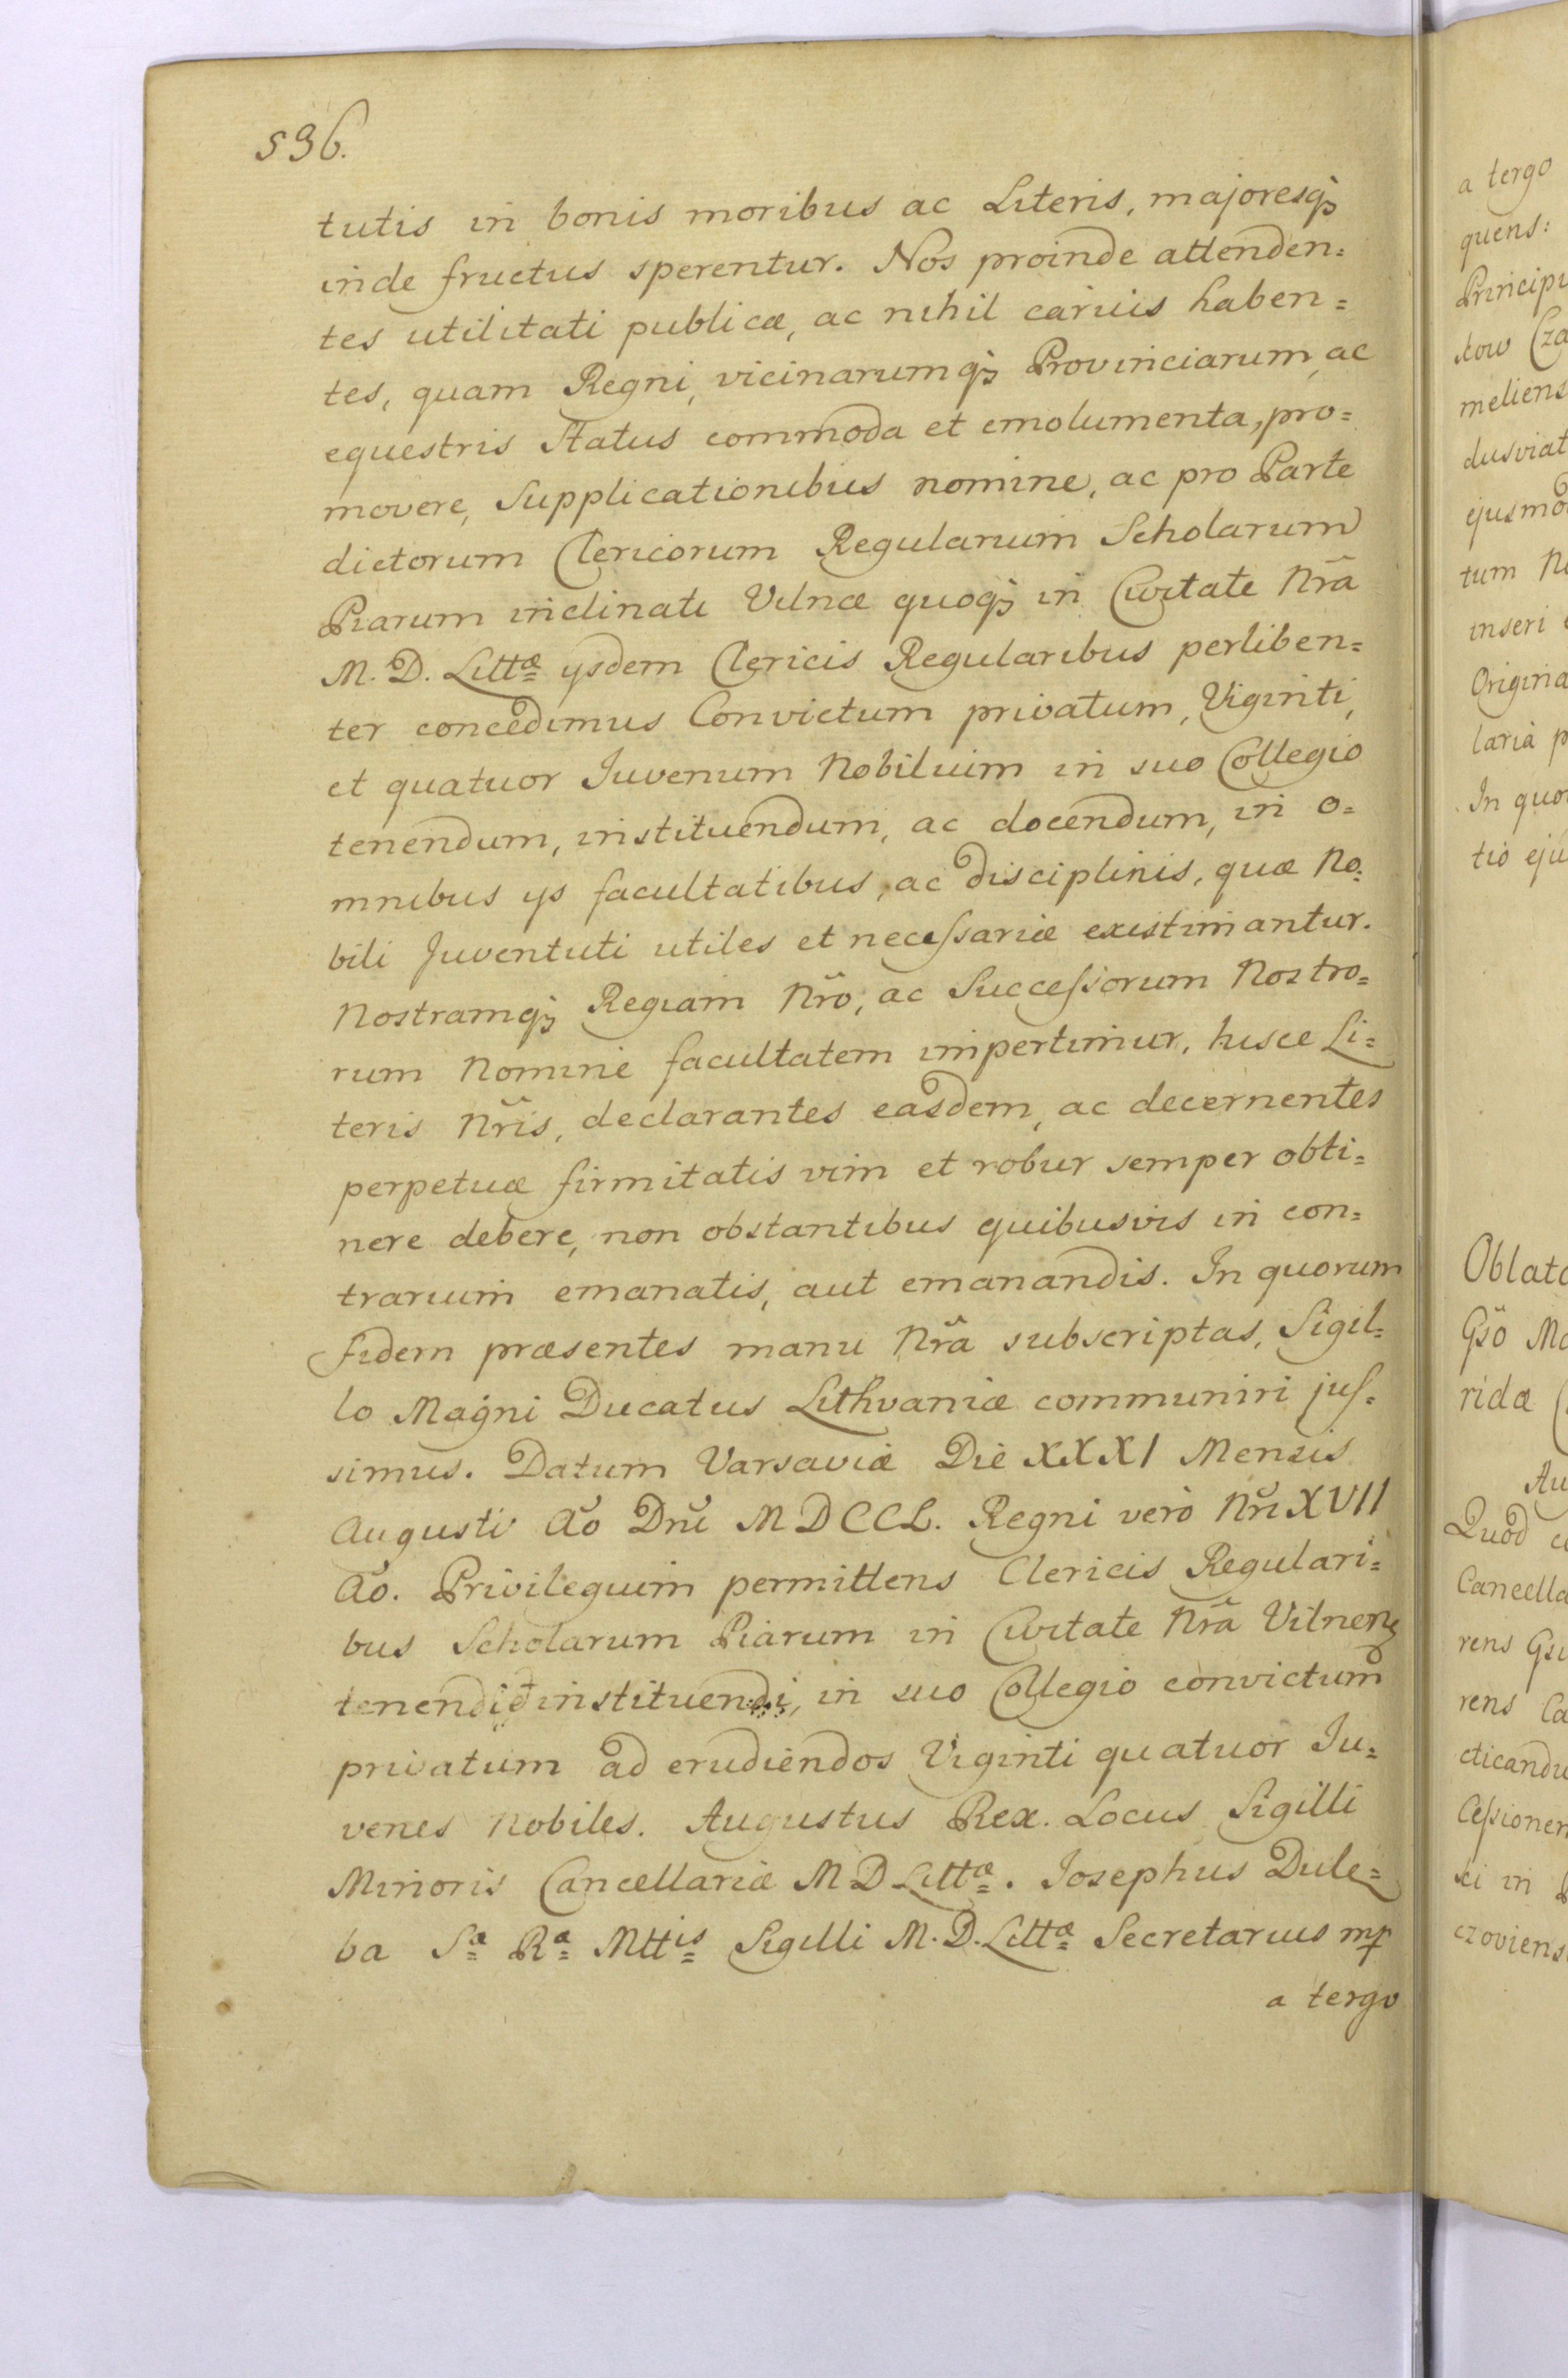 536.
tutis in bonis moribus ac Literis, majoresq₃
inde fructus sperentur. Nos proinde attenden=
tes utilitati publicæ, ac nihil carius haben=
tes, quam Regni, vicinarumq₃ Provinciarum, ac
equestris Status commoda et emolumenta, pro=
movere, Supplicationibus nomine, ac pro Parte
dictorum Clericorum Regularium Scholarum
Piarum inclinati Vilnæ quoq₃ in Civitate Nr̃a
M. D. Littæ ysdem Clericis Regularibus perliben=
ter concedimus Convictum privatum, Viginti,
et quatuor Juvenum Nobilium in suo Collegio
tenendum, instituendum, ac docendum, in o=
mnibus ys facultatibus, ac disciplinis, quæ No=
bili Juventuti utiles et neceſsariæ existimantur.
Nostramq₃ Regiam Nr̃o, ac Succeſsorum Nostro=
rum Nomine facultatem impertimur, hisce Li=
teris Nr̃is, declarantes easdem, ac decernentes
perpetuæ firmitatis vim et robur semper obti=
nere debere, non obstantibus quibusvis in con=
trarium emanatis, aut emanandis. In quorum
fidem præsentes manu Nr̃a subscriptas, Sigil=
lo Magni Ducatus Lithvaniæ communiri juſ=
simus. Datum Varsaviæ Die XXXI Mensis
Augusti Aõ Dni̇̃ MDCCL. Regni verò Nr̃i XVII
Aõ. Privilegium permittens Clericis Regulari=
bus Scholarum Piarum in Civitate Nr̃a Vilnen₃
tenendi et instituendi, in suo Collegio convictum
privatum ad erudiendos Viginti quatuor Ju=
venes Nobiles. Augustus Rex. Locus Sigilli
Minoris Cancellariæ M D Littæ. Josephus Dule=
ba Sæ Ræ Mttis Sigilli M. D. Littæ Secretarius mp
a tergo
a tergo
quens:
Principi
stow Cza
meliens
dusviat
ejusmo
tum N
inseri
Origina
laria p
In quo
tio eju
Oblata
Gso̊ Ma
ridæ
Au
Quod c
Cancella
rens Gsi
rens Ca
cticandu
Ceſsionem
ski in
czoviens